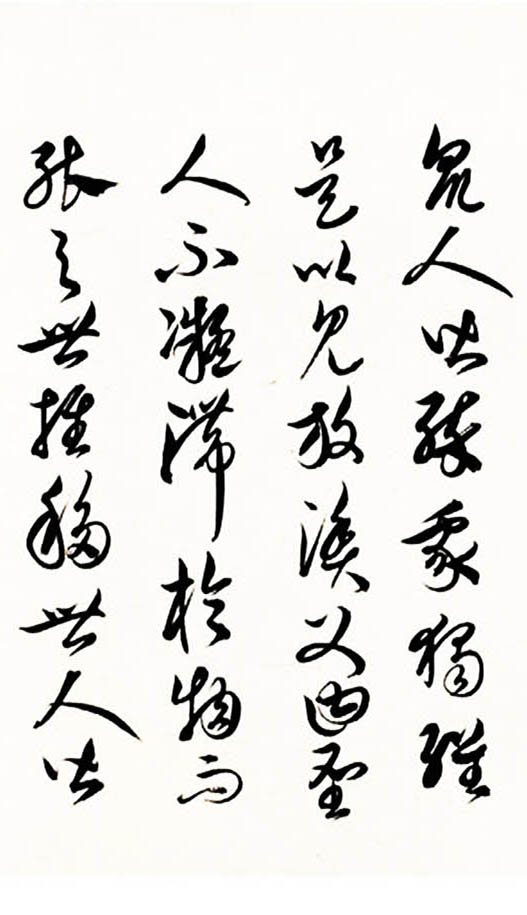 眾人皆醉我獨醒
是以見放漁父曰聖
人不凝滯於物而
能與世推移世人皆